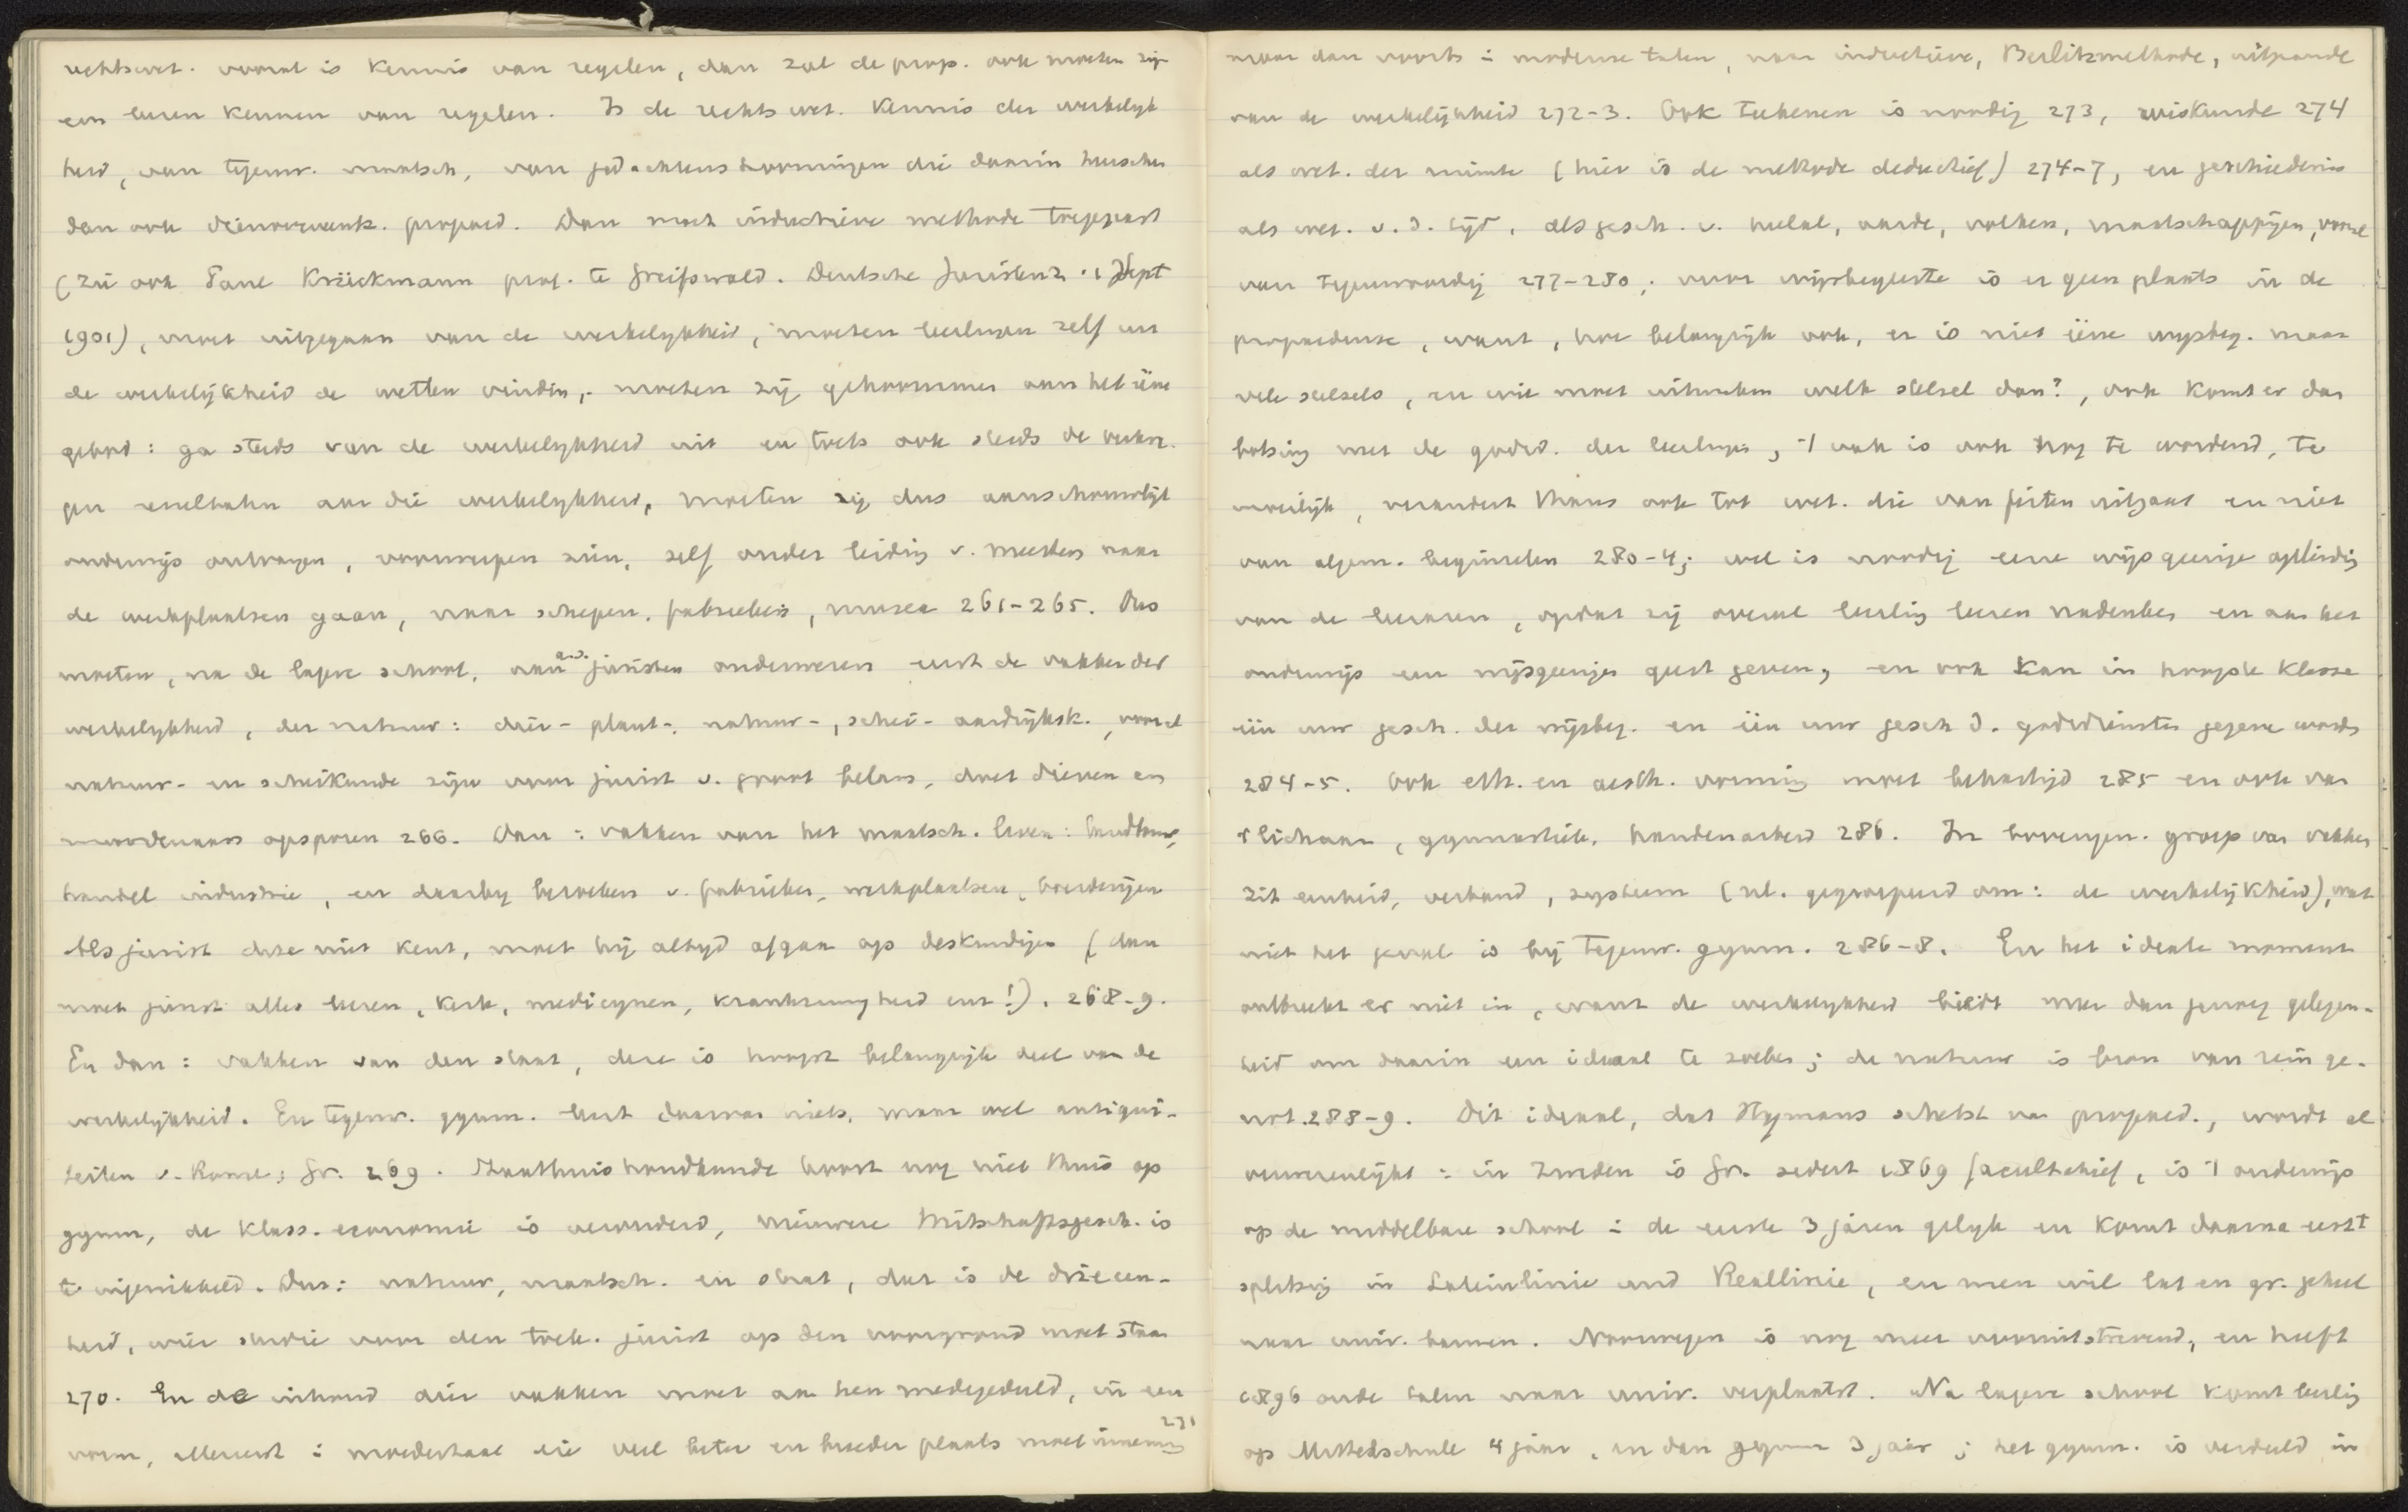 rechtswet. vooral is kennis van regelen, dan zal de prop. ook moeten zijn
een leeren kennen van regelen. Is de rechtswet. kennis der werkelijk
heid, van tegenw. maatsch, van gedachtenstroomingen die daarin heerschen
dan ook dienovereenk. propaed. Dan moet inductieve methode toegepast
(zie ook Paul Krückmann prof. te Greifswald. Deutsche Juristenz. 1 Sept
1901), moet uitgegaan van de werkelijkheid, moeten leerlingen zelf uit
de werkelijkheid de wetten vinden, moeten zij gehoorzamen aan het ééne
gebod: ga steeds van de werkelijkheid uit en toets ook steeds de verkre-
gen resultaten aan die werkelijkheid, moeten zij dus aanschouwelijk
onderwijs ontvangen, voorwerpen zien, zelf onder leiding v. meesters naar
de werkplaatsen gaan, naar schepen, fabrieken, musea 261-265. Dus
moeten, na de lagere school, aan a.s. juristen onderwezen eerst de vakken der
werkelijkheid, der natuur: dier- plant-, natuur-, schei- aardrijksk., vooral
natuur- en scheikunde zijn voor jurist v. groot belang, doet dieven en
moordenaars opsporen 266. Dan: vakken van het maatsch. leven: landbouw,
handel industrie, en daarbij bezoeken v. fabrieken, werkplaatsen, boerderijen
Als jurist deze niet kent, moet hij altijd afgaan op deskundigen (dan
moet jurist alles leeren, kerk, medicijnen, krankzinnigheid enz!). 268-9.
En dan: vakken van den staat, deze is hoogst belangrijk deel van de
werkelijkheid. En tegenw. gymn. leert daarvan niets, maar wel antiqui-
teiten v. Rome; Gr. 269. Staathuishoudkunde hoort nog niet thuis op
gymn, de klass. economie is verouderd, nieuwere Wirtschaftsgesch. is
te ingewikkeld. Dus: natuur, maatsch. en staat, dat is de drieeen-
heid, wier studie voor den toek. jurist op den voorgrond moet staan
270. En de inhoud dier vakken moet aan hen medegedeeld, in een
vorm, allereerst i moedertaal die veel beter en breeder plaats moet innemen 271
maar dan voorts i moderne talen, naar inductieve, Berlitzmethode, uitgaande
van de werkelijkheid 272-3. Ook teekenen is noodig 273, wiskunde 274
als wet. der ruimte (hier is de methode deductief) 274-7, en geschiedenis
als wet. v. d. tijd, als gesch. v. heelal, aarde, volken, maatschappijen, vooral
van tegenwoordig 277-280; voor wijsbegeerte is er geen plaats in de
propaedeuse, want, hoe belangrijk ook, er is niet ééne wijsbeg. maar
vele stelsels, en wie moet uitmaken welk stelsel dan?, ook komt er dan
botsing met de godsd. der leerlingen, 't vak is ook nog te wordend, te
moeilijk, verandert thans ook tot wet. die van feiten uitgaat en niet
van algem. beginselen 280-4; wel is noodig eene wijsgeerige opleiding
van de leeraren, opdat zij overal leerling leeren nadenken en aan het
onderwijs een wijsgeerigen geest geven, en ook kan in hoogste klasse
één uur gesch. der wijsbeg. en één uur gesch d. godsdiensten gegeven worden
284-5. Ook eth. en aesth. vorming moet behartigd 285 en ook van
't lichaam, gymnastiek, handenarbeid 286. In bovengen. groep van vakken
zit eenheid, verband, systeem (nl. gegroepeerd om: de werkelijkheid), wat
niet het geval is bij tegenw. gymn. 286-8. En het ideale moment
ontbreekt er niet in, want de werkelijkheid biedt meer dan genoeg gelegen-
heid om daarin een ideaal te zoeken; de natuur is bron van rein ge-
not. 288-9. Dit ideaal, dat Hymans schetst van propaed., wordt al
verwezenlijkt: in Zweden is Gr. sedert 1869 facultatief, is 't onderwijs
op de middelbare school i de eerste 3 jaren gelijk en komt daarna eerst
splitsing in Lateinlinie und Reallinie, en men wil lat en gr. geheel
naar univ. bannen. Noorwegen is nog meer vooruitstrevend, en heeft
1896 oude talen naar univ. verplaatst. Na lagere school komt leerling
op Mittelschule 4 jaar, en dan gymn 3 jaar; het gymn. is verdeeld in